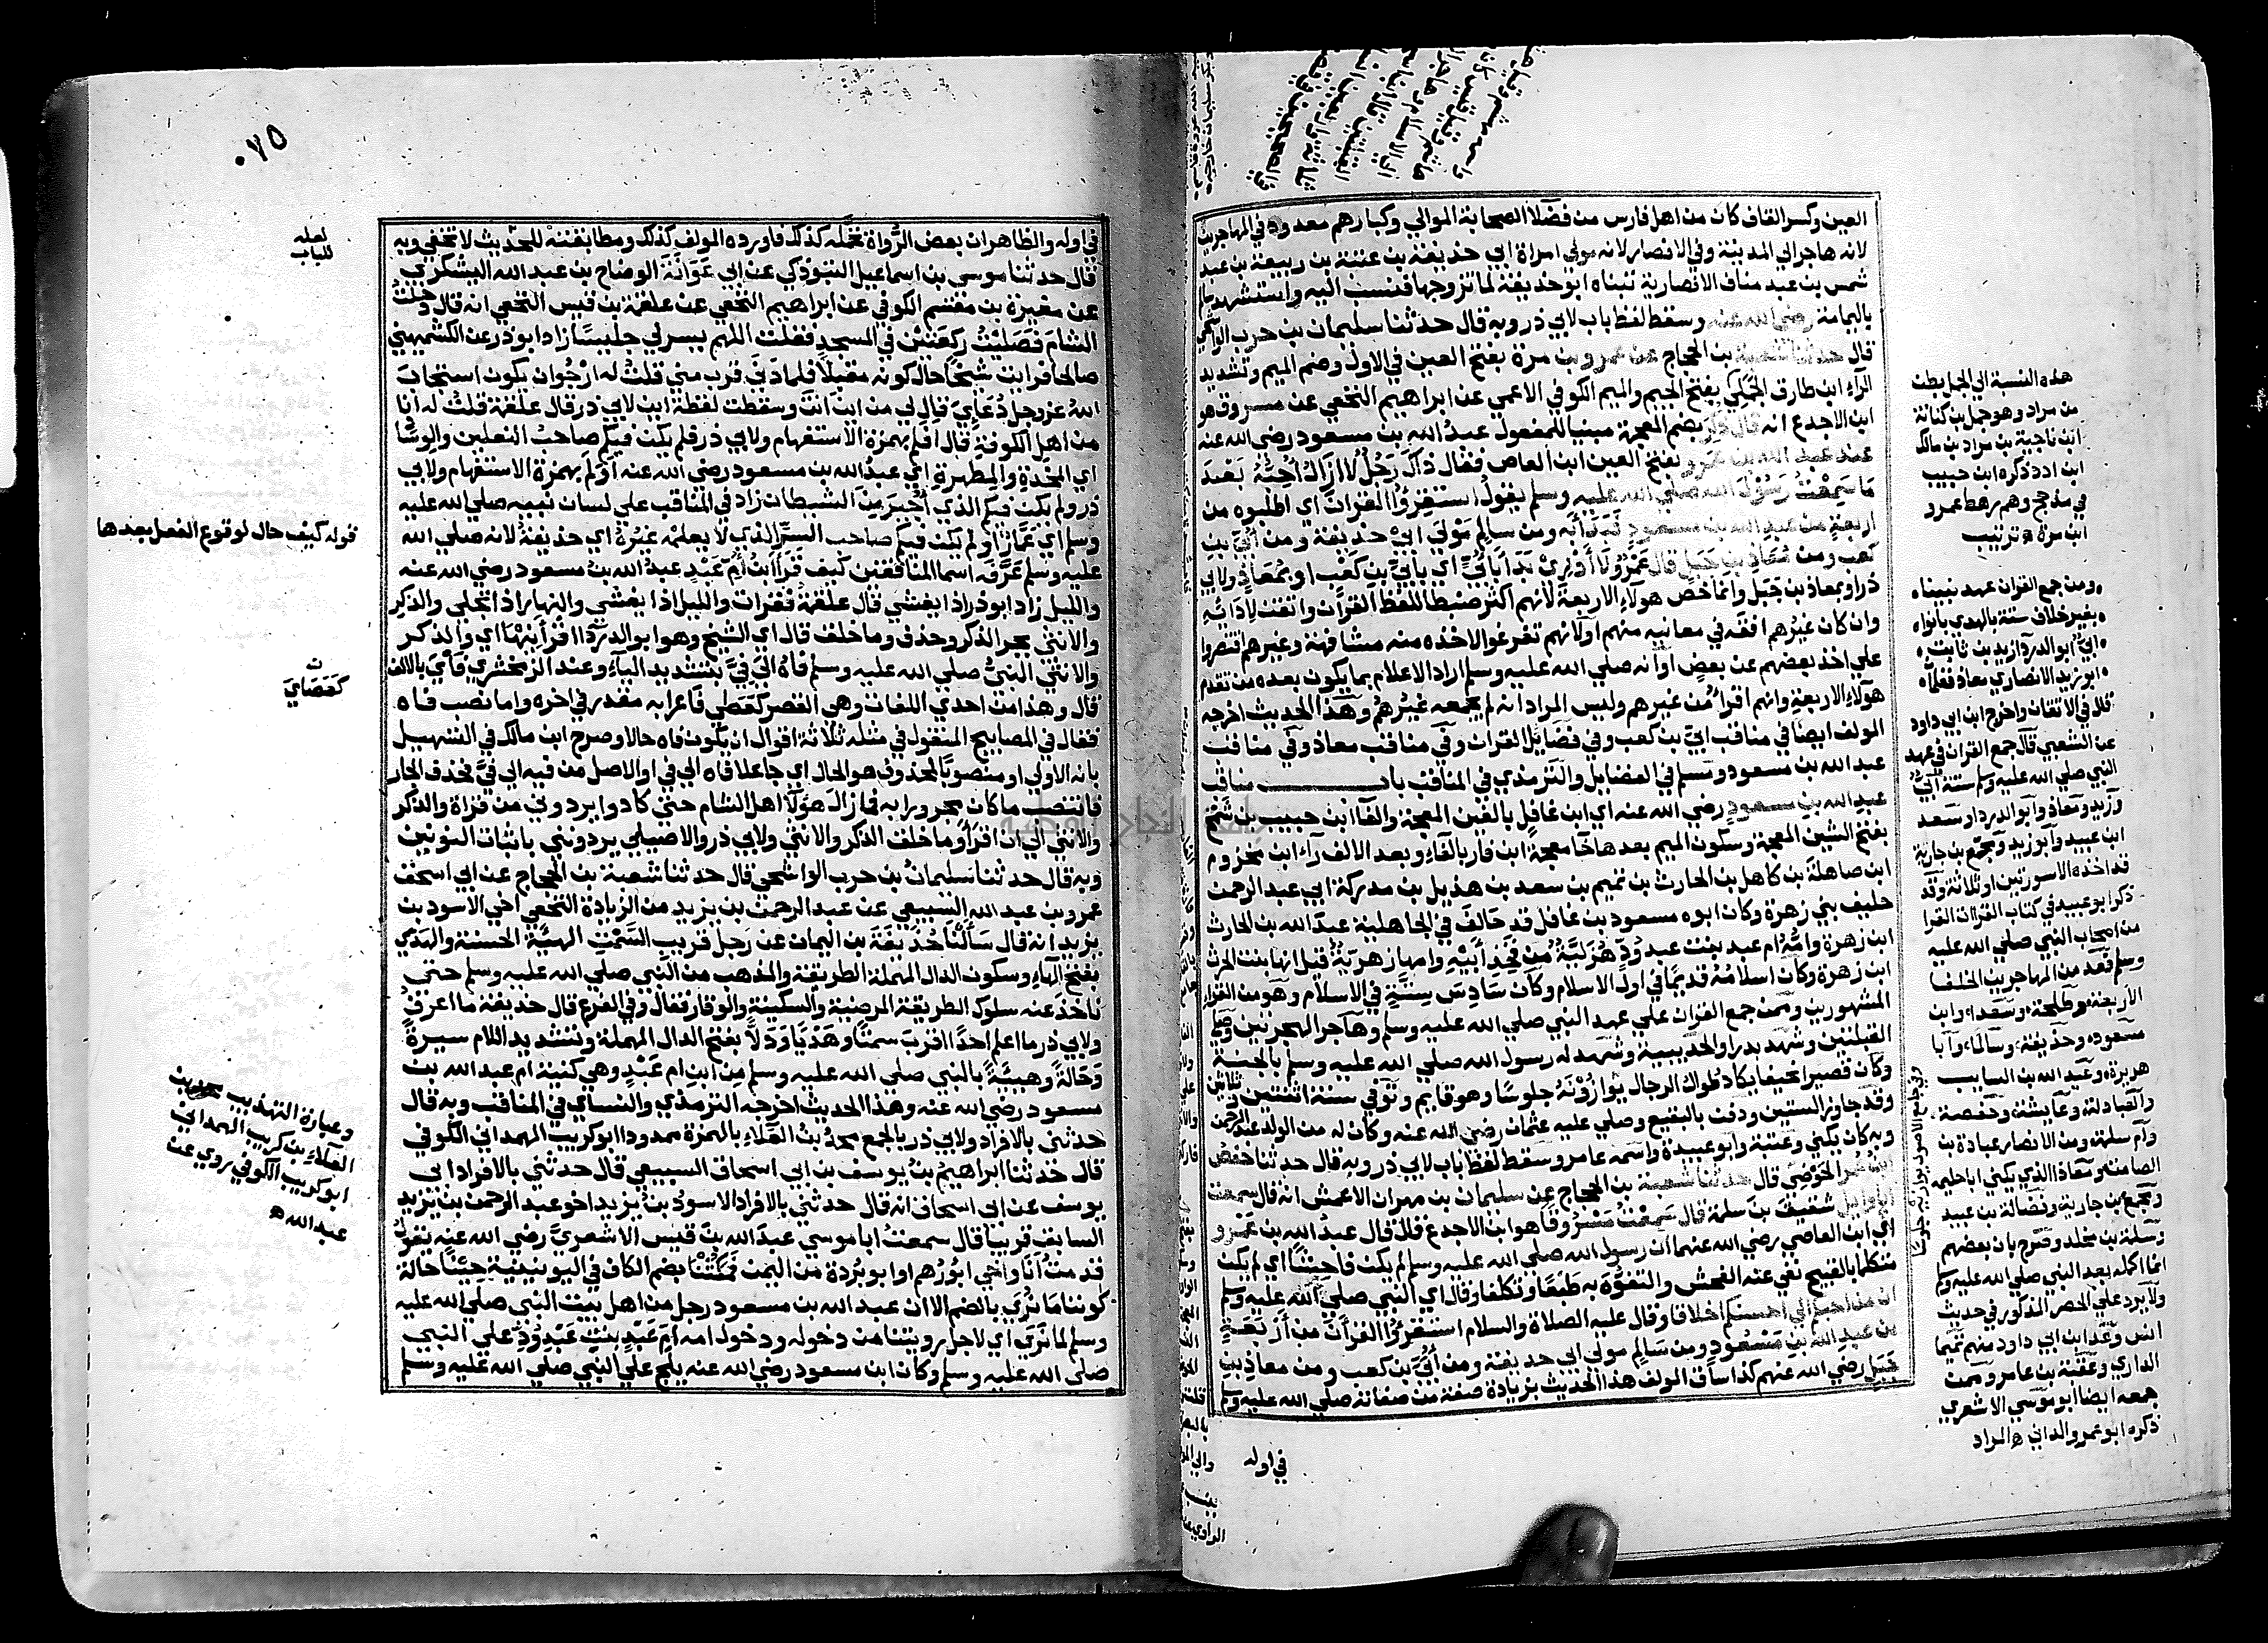 العين وكسر القاف كان من اهل فارس من فضلاء الصحابة الموالي وكبارهم معدود في المهاجرين
لانه هاجر الي المدينة وفي الانصار لانه مولي امراة ابي حذيفة بن عتبة بن ربيعة بن عبد
شمس بن عبد مناف الانصارية تبناه ابو حذيفة لما تزوجها فنسب اليه واستشهد
باليمامة رضي الله عنه وسقط لفظ باب لابي ذر وبه قال حدثنا سليمان بن حرب الواشحي
قال حدثنا شعبة بن الحجاج عن عمرو بن مرة بفتح العين في الاول وضم الميم وتشديد
الراء ابن طارق الجملي بفتح الجيم والميم الكوفي الاعمي عن ابراهيم النخعي عن مسروق هو
ابن الاجدع انه قال ذكر بضم المعجمة مبنيا للمفعول عبد الله بن مسعود رضي الله عنه
عند عبد الله بن عمرو بفتح العين ابن العاص فقال ذاك رجل لا ازال احبه بعد
ما سمعت رسول الله صلي الله عليه وسلم يقول استقرؤا القران اي اطلبوه من
اربعة من عبد الله بن مسعود فبدا به ومن سالم مولي ابي حذيفة ومن ابي بن
كعب ومن معاذ بن جبل قال عمرو لا ادري بدا بابي اي بابي بن كعب او بمعاذ ولابي
ذر او بمعاذ بن جبل وانما خص هولاء الاربعة لانهم اكثر ضبطا للفظ القران واتقن لادايه
وان كان غيرهم افقه في معانيه منهم او لانهم تفرغوا لاخذه منه مشافهة وغيرهم اقتصروا
علي اخذ بعضهم عن بعض او انه صلي الله عليه وسلم اراد الاعلام بما يكون بعده من تقدم
هولاء الاربعة وانهم اقرا من غيرهم وليس المراد انه لم يجمعه غيرهم وهذا الحديث اخرجه
المولف ايضا في مناقب ابي بن كعب وفي فضايل القران وفي مناقب معاذ وفي مناقب
عبد الله بن مسعود ومسلم في الفضايل والترمذي في المناقب باب مناقب
عبد الله بن مسعود رضي الله عنه اي ابن غافل بالغين المعجمة والفا ابن حبيب بن شمخ
بفتح الشين المعجمة وسكون الميم بعدها خا معجمة ابن فار بالفاء وبعد الالف راء ابن مخزوم
ابن صاهلة بن كاهل بن الحارث بن تميم بن سعد بن هذيل بن مدركة ابي عبد الرحمن
حليف بني زهرة وكان ابوه مسعود بن غافل قد حالف في الجاهلية عبد الله بن الحارث
ابن زهرة وامه ام عبد بنت عبد ود هزلية من فخذ ابيه وامها زهرية قيل انها بنت الحرث
ابن زهرة وكان اسلامه قديما في اول الاسلام وكان سادس ستة في الاسلام وهو من القراء
المشهورين وممن جمع القران علي عهد النبي صلي الله عليه وسلم وهاجر الهجرتين وصلي
القبلتين وشهد بدرا والحديبية وشهد له رسول الله صلي الله عليه وسلم بالجنة
وكان قصيرا نحيفا يكاد طوال الرجال يوازونه جلوسا وهو قايم وتوفي سنة اثنتين وثلاثين
وقد جاوز الستين ودفن بالبقيع وصلي عليه عثمان رضي الله عنه وكان له من الولد عبد الرحمن
وبه كان يكني وعتبة وابو عبيدة واسمه عامر وسقط لفظ باب لابي ذر وبه قال حدثنا حفص
بن عمر الحوضي قال حدثنا شعبة بن الحجاج عن سليمان بن مهران الاعمش انه قال سمعت
ابا وايل شقيق بن سلمة قال سمعت مسروقا هو ابن الاجدع قال قال عبد الله بن عمرو
اي ابن العاصي رضي الله عنهما ان رسول الله صلي الله عليه وسلم لم يكن فاحشا اي لم يكن
متكلما بالقبيح نفي عنه الفحش والتفوه به طبعا وتكلفا وقال اي النبي صلي الله عليه وسلم
ان من احبكم الي احسنكم اخلاقا وقال عليه الصلاة والسلام استقرئوا القران من اربعة
من عبد الله بن مسعود ومن سالم مولي ابي حذيفة ومن ابي بن كعب ومن معاذ بن
جبل رضي الله عنهم كذا ساق المولف هذا الحديث بزيادة صفة من صفاته صلي الله عليه وسلم
في اوله
هذه النسبة الي الجمل بطن
من مراد وهو جمل بن كنانة
ابن ناجية بن مراد بن مالك
ابن ادد ذكره ابن حبيب
في مذحج وهم رهط عمرو
ابن مرة ه ترتيب
ومن جمع القران عهد نبينا
بغير خلاف ستة بالهدي باتوا
ابي ابو الدردا زيد بن ثابت
ابو زيد الانصاري معاذ
قال في الاتقان واخرج ابن ابي داود
عن الشعبي قال جمع القران في عهد
النبي صلي الله عليه وسلم ستة ابي
وزيد ومعاذ وابو الدردا وسعد
ابن عبيد وابو زيد ومجمع بن جارية
قد اخذه الا سورتين او ثلاثة وقد
ذكر ابو عبيد في كتاب القراات القرا
من اصحاب النبي صلي الله عليه
وسلم فعد من المهاجرين الخلفا
الاربعة وطلحة وسعدا وابن
مسعود وحذيفة وسالما وابا
هريرة وعبد الله بن السايب
والعبادلة وعايشة وحفصة
وام سلمة ومن الانصار عبادة بن
الصامت ومعاذا الذي يكني ابا حليمة
ومجمع بن جارية وفضالة بن عبيد
ومسلمة بن مخلد وصرح بان بعضهم
انما اكمله بعد النبي صلي الله عليه وسلم
ولا يرد علي الحصر المذكور في حديث
انس وعد ابن ابي داود منهم تميما
الداري وعقبة بن عامر وممن
جمعه ايضا ابو موسي الاشعري
ذكره ابو عمرو الداني ه المراد
وفي جامع الاصول يوازيه جلوسا
٠٧٥
في اوله والظاهر ان بعض الرواة تحمله كذلك فاورده المولف كذلك ومطابقته للحديث لا تخفي وبه
قال حدثنا موسي بن اسماعيل التبوذكي عن ابي عوانة الوضاح بن عبد الله اليشكري
عن مغيرة بن مقسم الكوفي عن ابراهيم النخعي عن علقمة بن قيس النخعي انه قال دخلت
الشام فصليت ركعتين في المسجد فقلت اللهم يسر لي جليسا زاد ابو ذر عن الكشميهني
صالحا فرايت شيخا حال كونه مقبلا فلما دنى قرب مني قلت له ارجوان يكون استجاب
الله عز وجل دعاءي قال لي من اين انت وسقطت لفظة اين لابي ذر قال علقمة قلت له انا
من اهل الكوفة قال افلم بهمزة الاستفهام ولابي ذر فلم يكن فيكم صاحب النعلين والوساد
اي المخدة والمطهرة اي عبد الله بن مسعود رضي الله عنه اولم بهمزة الاستفهام ولابي
ذر ولم يكن فيكم الذي اجير من الشيطان زاد في المناقب علي لسان نبيه صلي الله عليه
وسلم اي عمار اولم يكن فيكم صاحب السر الذي لا يعلمه غيره اي حذيفة لانه صلي الله
عليه وسلم عرفه اسما المنافقين كيف قرا ابن ام عبد عبد الله بن مسعود رضي الله عنه
والليل زاد ابو ذر اذا يغشي قال علقمة فقرات والليل اذا يغشي والنهار اذا تجلي والذكر
والانثي بجر الذكر وحذف وما خلق قال اي الشيخ وهو ابو الدرداء اقرانيها اي والذكر
والانثي النبي صلي الله عليه وسلم فاه الي في بتشديد الياء وعند الزمخشري فاي بالالف
قال وهذا من احدي اللغات وهي القصر كعصي فاعرابه مقدر في اخره واما نصب فاه
فقال في المصابيح المنقول في مثله ثلاثة اقوال ان يكون فاه حالا وصرح ابن مالك في التسهيل
بانه الاولي او منصوبا بمحذوف هو الحال اي جاعلا فاه الي في او الاصل من فيه الي في فحذف الجار
فانتصب ما كان مجرورا به فما زال هولاء اهل الشام حتي كادوا يردوني من قراة والذكر
والانثي الي ان اقرا وما خلق الذكر والانثي ولابي ذر والاصيلي يردونني باثبات النونين
وبه قال حدثنا سليمان بن حرب الواشحي قال حدثنا شعبة بن الحجاج عن ابي اسحق
عمرو بن عبد الله السبيعي عن عبد الرحمن بن يزيد من الزيادة النخعي اخي الاسود بن
يزيد انه قال سالنا حذيفة بن اليمان عن رجل قريب السمت الهيئة الحسنة والهدي
بفتح الهاء وسكون الدال المهملة الطريقة والمذهب من النبي صلي الله عليه وسلم حتي
ناخذ عنه سلوك الطريقة المرضية والسكينة والوقار فقال وفي الفرع قال حذيفة ما اعرف
ولابي ذر ما اعلم احدا اقرب سمتا وهديا ودلا بفتح الدال المهملة وتشديد اللام سيرة
وحالة وهيئة بالنبي صلي الله عليه وسلم من ابن ام عبد وهي كنية ام عبد الله بن
مسعود رضي الله عنه وهذا الحديث اخرجه الترمذي والنساي في المناقب وبه قال
حدثني بالافراد ولابي ذر بالجمع محمد بن العلاء بالهمزة ممدودا ابو كريب الهمداني الكوفي
قال حدثنا ابراهيم بن يوسف بن ابي اسحاق السبيعي قال حدثني بالافراد ابي
يوسف عن ابي اسحاق انه قال حدثني بالافراد الاسود بن يزيد اخو عبد الرحمن بن يزيد
السابق قريبا قال سمعت ابا موسي عبد الله بن قيس الاشعري رضي الله عنه يقول
قدمت انا واخي ابو رهم او ابو بردة من اليمن فمكثنا بضم الكاف في اليونينية حينا حالة
كوننا ما نري بالضم الا ان عبد الله بن مسعود رجل من اهل بيت النبي صلي الله عليه
وسلم لما نري اي لاجل رويتنا من دخوله ودخول امه ام عبد بنت عبد ود علي النبي
صلي الله عليه وسلم وكان ابن مسعود رضي الله عنه يلج علي النبي صلي الله عليه وسلم
لعله
للباب
قوله كيف حال لوقوع الفصل بعدها
كعصاي
وعبارة التهذيب محمد بن
العلاء بن كريب الهمداني
ابو كريب الكوفي روي عن
عبد الله ه